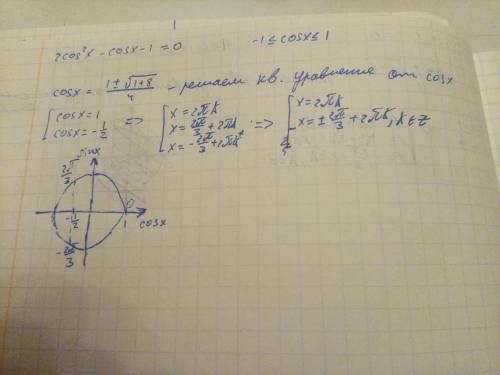 1
2cos²x - cosx - 1 = 0   -1 ≤ cosx ≤ 1
cosx = (1 ± √(1+8))/4 - решаем кв. уравнение от cosx
[cosx = 1   =>   [x = 2πk   =>   [x = 2πk
cosx = -1/2   x = 2π/3 + 2πk   x = ± 2π/3 + 2πk, k ∈ Z
x = -2π/3 + 2πk
sinx
2π/3
-1/2   0
1   cosx
-2π/3